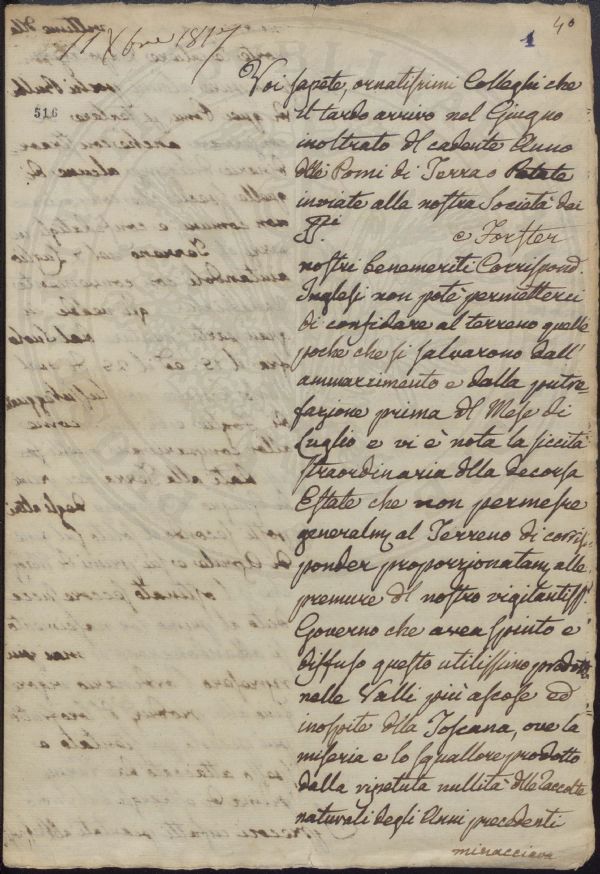 11 Xbre 1817
40
1
516
Voi sapete, ornatissimi Colleghi che
il tardo arrivo nel Giugno
inoltrato dl cadente Anno
dlle Pomi di Terra o Patate
inviate alla nostra Società dai
SSri
e Forster
nostri benemeriti Corrispond.
Inglesi non potè permetterci
di confidare al terreno quelle
poche che si salvarono dall'
ammarcimento e dalla putre-
fazione prima dl Mese di
Luglio e vi è nota la siccità
straordinaria dlla decorsa
Estate che non permesse
generalm al Terreno di corris-
ponder proporzionatam alle
premure dl nostro vigilantiss.
Governo che avea spinto e
diffuso questo utilissimo prodotto
nelle Valli più ascose ed
inospite dlla Toscana, ove la
miseria e lo squallore prodotto
dalla ripetuta nullità dlle Raccolte
naturali degli Anni precedenti
minacciava